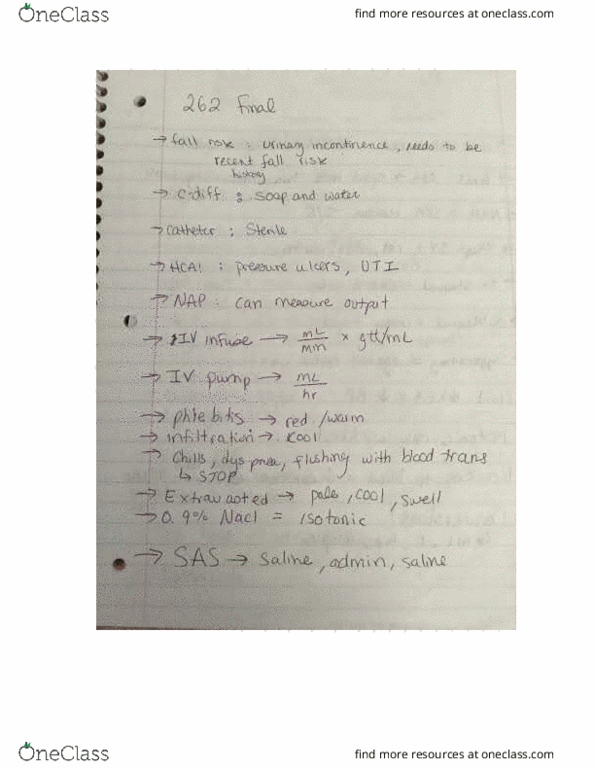 OneClass
find more resources at oneclass.com
262 Final
→ fall risk : urinary incontinence, needs to be
recent fall risk
history
→ C-diff : soap and water
→ Catheter : Sterile
→ HCAI : pressure ulcers, UTI
→ NAP : can measure output
→ IV infuse → mL/min × gtt/mL
→ IV pump → mL/hr
→ phlebitis → red /warm
→ infiltration → Kool
→ Chills, dyspnea, flushing with blood trans
↳ STOP
→ Extravaoted → pale, cool, swell
→ 0.9% Nacl = isotonic
→ SAS → saline, admin, saline
OneClass
find more resources at oneclass.com